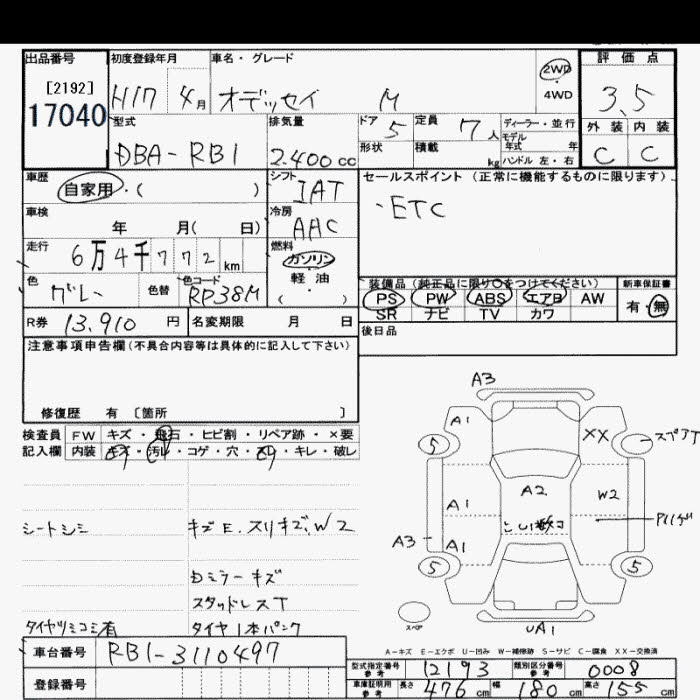 出品番号 初度登録年月 車名・グレード 評価点
[2192]
17040
H17 4月 オデッセイ M
2WD
4WD
3.5
型式 排気量 ドア 5 定員 7人 ディーラー・並行
モデル年式 年
外装 内装
DBA-RB1 2.400cc 形状 積載 kg ハンドル 左・右
C C
車歴 シフト セールスポイント (正常に機能するものに限ります)
自家用・( ) IAT
・ETC
車検 冷房
年 月( 日) AAC
走行 6万4千772km
燃料
ガソリン
軽・油
( )
色 色替 色コード
グレー RP38M
装備品 (純正品に限り○をつけてください) 新車保証書
PS PW ABS エアB AW 有・無
SR ナビ TV カワ
R券 13.910円 名変期限 月 日
後日品
注意事項申告欄(不具合内容等は具体的に記入して下さい)
修復歴 有 〔箇所 〕
検査員 FW キズ・飛石・ヒビ割・リペア跡・×要
記入欄 内装 キズ・汚レ・コゲ・穴・スレ・キレ・破レ
シートシミ キズE.スリキズ.W2
Dミラーキズ
スタッドレスT
タイヤツミコミ有 タイヤ1本パンク
A3
A1 XX
5 スペアT
A2 W2
A1
A3 A1
5 5
スペア UA1
A-キズ E-エクボ U-凹み W-補修跡 S-サビ C-腐食 XX-交換済
車台番号 RB1-3110497
登録番号
型式指定番号 参考 12193 類別区分番号 参考 0008
車庫証明用 参考 長さ 476cm 幅 180cm 高さ 155cm